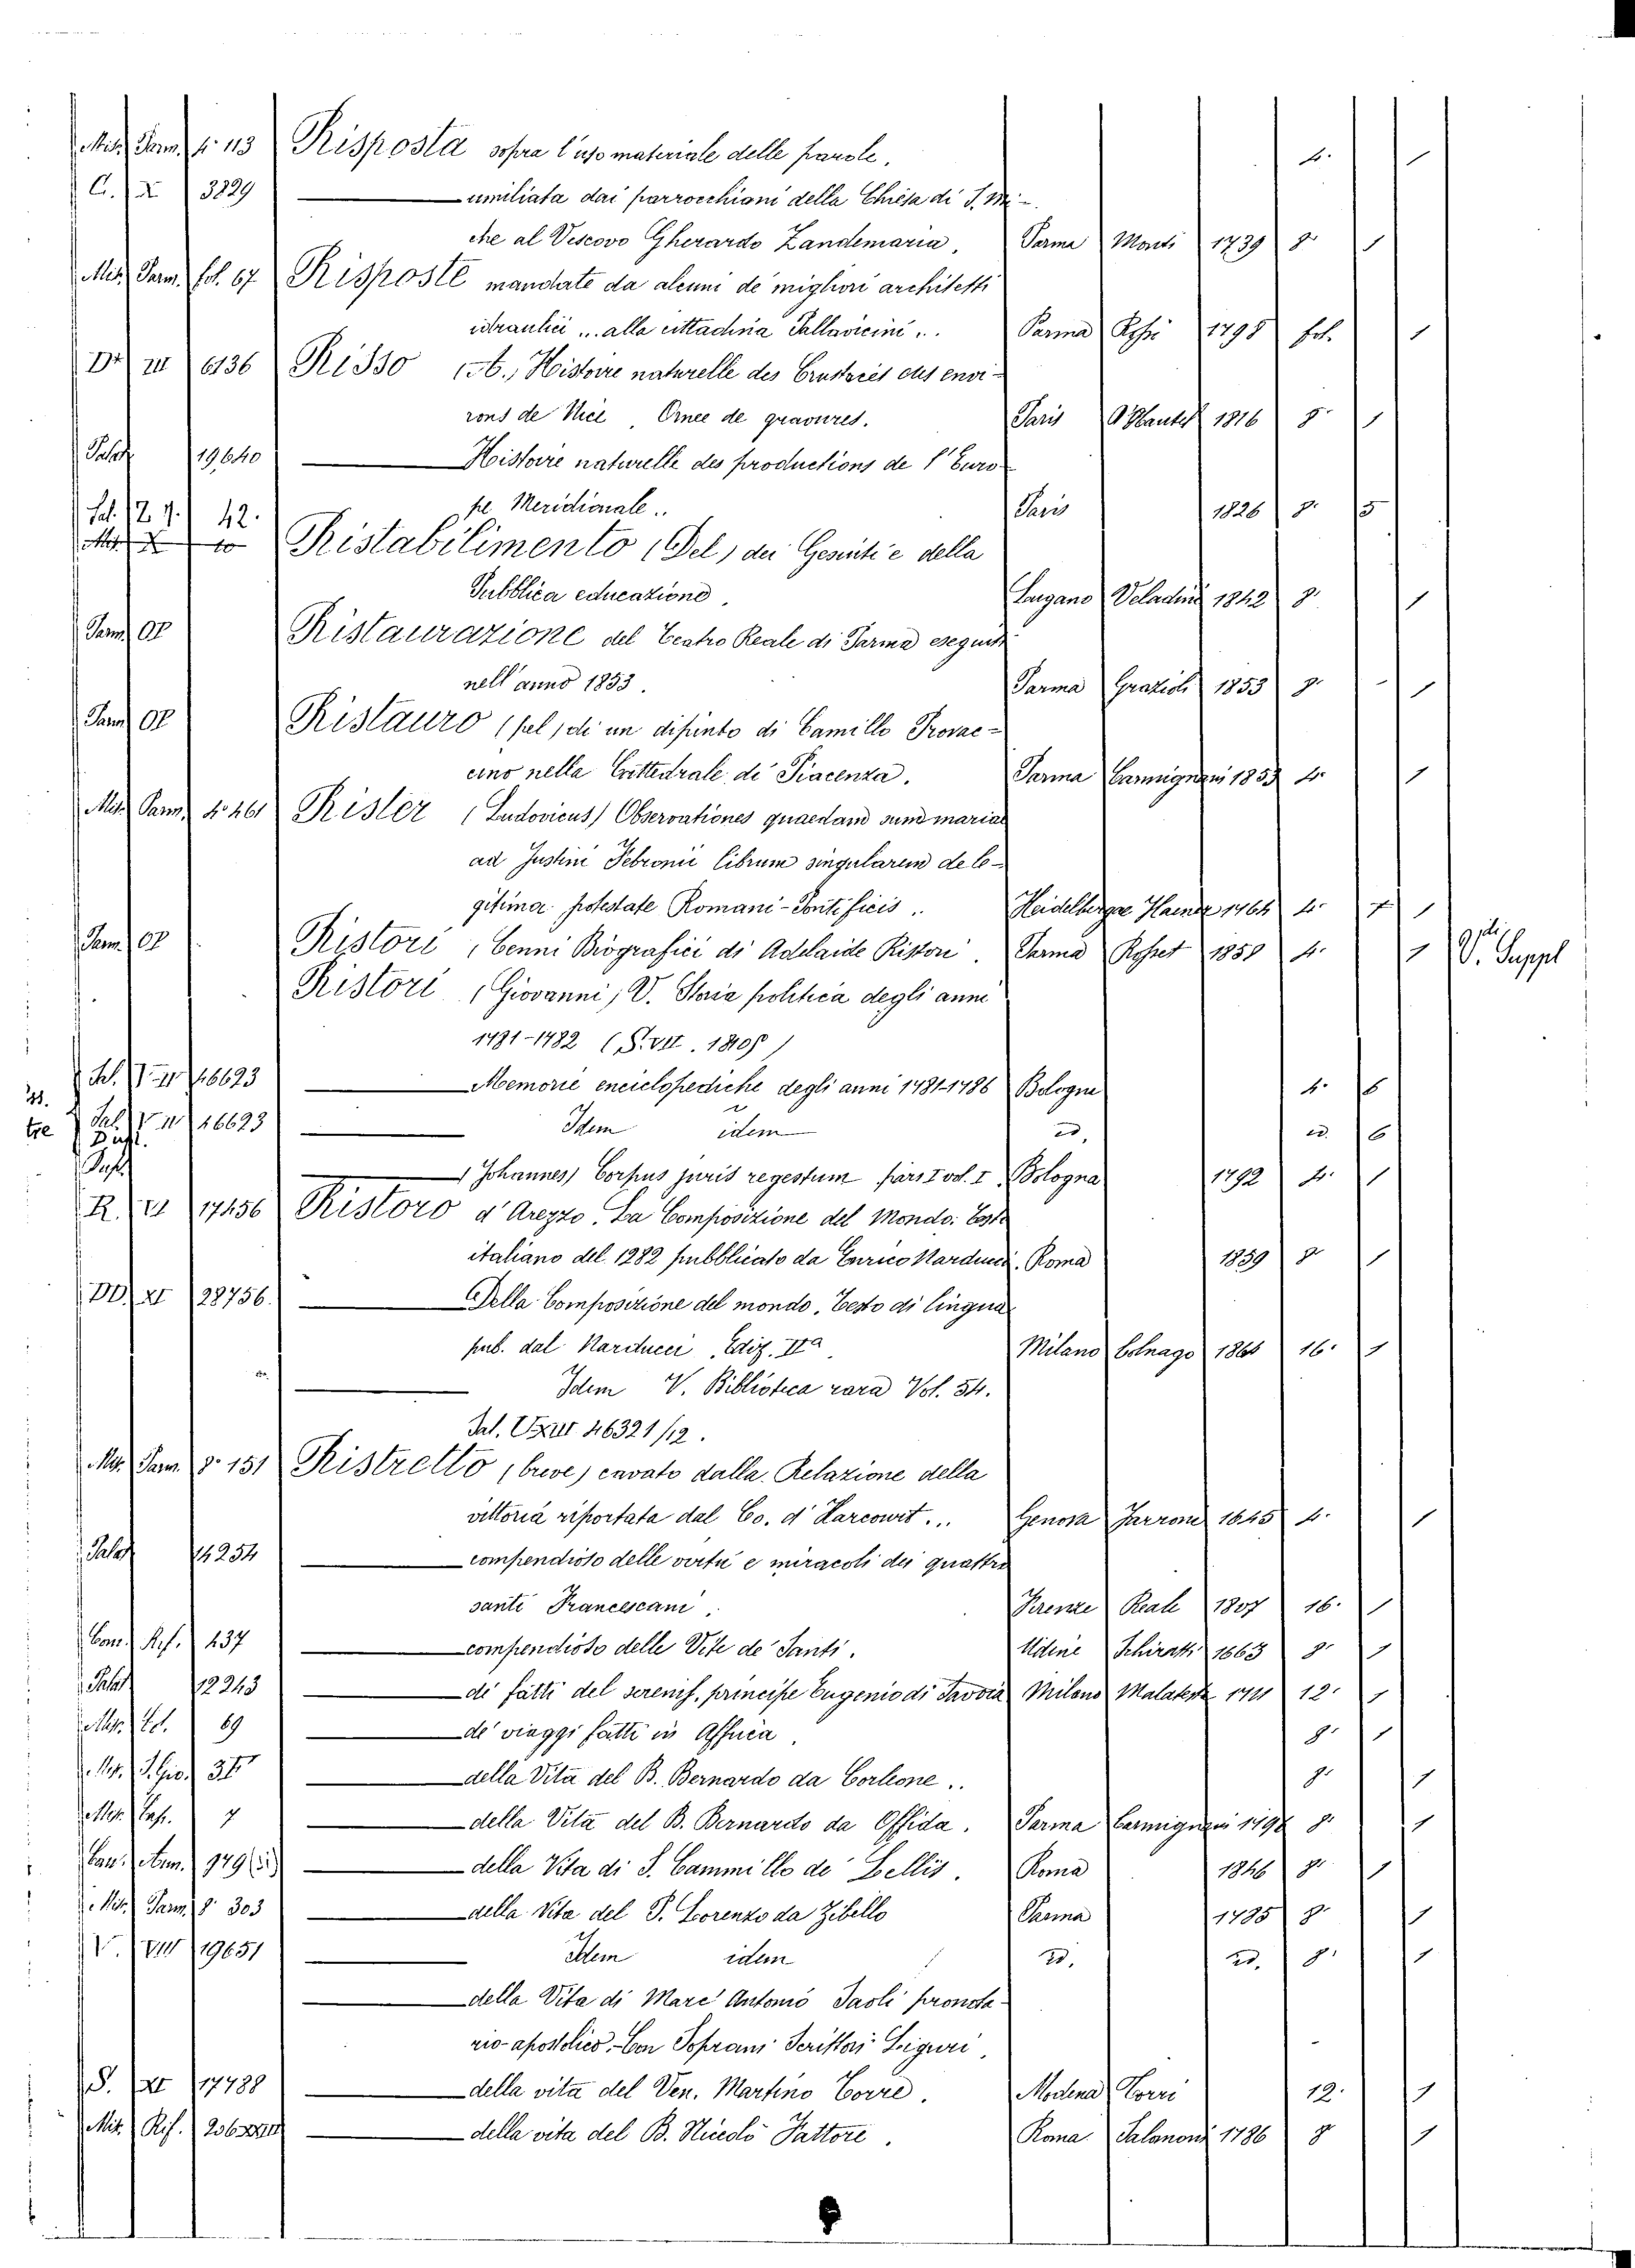 Mis. Parm. 4. 113 Risposta sopra l'uso materiale delle parole. 4. 1
C. X 3829 — umiliata dai parrocchiani della Chiesa di S. Mi-
che al Vescovo Gherardo Zandemaria, Parma Monti 1739 8° 1
Mis. Parm. fol. 67 Risposte mandate da alcuni de migliori architetti
idraulici ... alla cittadina Pallavicini .. Parma Rossi 1798 fol. 1
DD. III 6136 Risso (A., Histoire naturelle des Crustacés des envi-
rons de Nice, Ornee de gravures. Paris 1816 8° 1
Palat. 19,640 — Histoire naturelle des productions de l'Euro
pe Meridionale .. Paris 1826 8° 5
Sal. 42.
Mis. X 10 Ristabilimento (Del) dei Gesuiti e della
Pubblica educazione. Lugano Veladini 1842 8° 1
Parm. OP Ristaurazione del Teatro Reale di Parma eseguita
nell'anno 1853. Parma Grazioli 1853 8° 1
Parm. OP Ristauro (pel) di un dipinto di Camillo Procac-
cino nella Cattedrale di Piacenza. Parma Carmignani 1853 4° 1
Mis. Parm. 4° 461 Rister (Ludovicus) Observationes quaedam
ad Justini Febronii librum singularem de le-
gitima potestate Romani-Pontificis .. Heidelbergae Haener 1764 4° 1
Parm. OP Ristori, Cenni Biografici di Adelaide Ristori. Parma Rosset 1858 4° 1 V. Suppl
Ristori (Giovanni) V. Storia politica degli anni
1781-1782 (S. VII. 1810)
Sal. 16693 — Memorie enciclopediche degli anni 1781-1786 Bologna 4. 6
Sal. 16693 — Idem idem id. id. 6
Dupl.
— (Johannes) Corpus juris regestum pars I vol. I Bologna 1792 4. 1
R. VI 17456 Ristoro d'Arezzo. La Composizione del Mondo. Testo
italiano del 1282 pubblicato da Enrico Narducci. Roma 1859 8° 1
DD. XI 28756. — Della Composizione del mondo. Testo di lingua
pub. dal Narducci, Ediz. IIa Milano Colnago 1864 16. 1
— Idem V. Biblioteca rara Vol. 54.
Sal. 46321/12.
Mis. Parm. 8° 151 Ristretto (breve) cavato dalla Relazione della
vittoria riportata dal Co. d'Harcourt ... Genova Farroni 1645 4. 1
Palat. 14254 — compendioso delle virtù e miracoli dei quattro
santi Francescani. Firenze Reale 1807 16. 1
Con. Rif. 437 — compendioso delle Vite de' Santi. Udine Schiratti 1663 8° 1
Palat. 12243 — di fatti del serenis. principe Eugenio di Savoia Milano Malatesta 12. 1
Mis. 69 — de' viaggi fatti in Affrica. 8. 1
Mis. S. Gio. — della Vita del B. Bernardo da Corleone .. 8. 1
Mis. Cap. 7 — della Vita del B. Bernardo da Offida. Parma Carmignani 8. 1
Con. Ann. 979 — della Vita di S. Cammillo de Lellis. Roma 1846 8° 1
Mis. Parm. 8° 303 — della Vita del P. Lorenzo da Zibello Parma 1785 8° 1
V. VIII 19651 — Idem idem id. id. 8. 1
— della Vita di Marc' Antonio Paoli pronota-
rio apostolico. Con Soprani Scrittori Liguri.
S. XI 17788 — della vita del Ven. Martino Torre. Modena Torri 12. 1
Mis. Rif. — della vita del B. Nicolò Fattore. Roma Salomoni 1786 8° 1